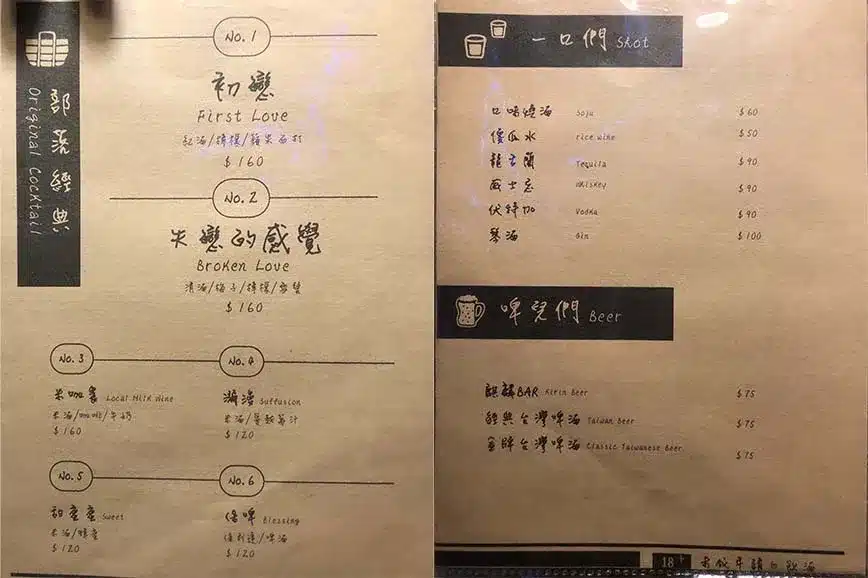 部落經典
Original Cocktail
No. 1
初戀
First Love
紅酒/檸檬/蘋果西打
$160
No. 2
失戀的感覺
Broken Love
清酒/梅子/檸檬/蜂蜜
$160
No. 3
米咖農 Local Milk Wine
米酒/咖啡/牛奶
$160
No. 4
瀰漫 Suffusion
米酒/蔓越莓汁
$120
No. 5
甜蜜蜜 Sweet
米酒/蜂蜜
$120
No. 6
保啤 Blessing
保利達/啤酒
$120
一口們 Shot
口味燒酒 Soju $60
傻瓜水 rice wine $50
龍舌蘭 Tequila $90
威士忌 Whiskey $90
伏特加 Vodka $90
琴酒 Gin $100
啤兒們 Beer
麒麟BAR Kirin Beer $75
經典台灣啤酒 Taiwan Beer $75
金牌台灣啤酒 Classic Taiwanese Beer $75
18+ 未成年請勿飲酒